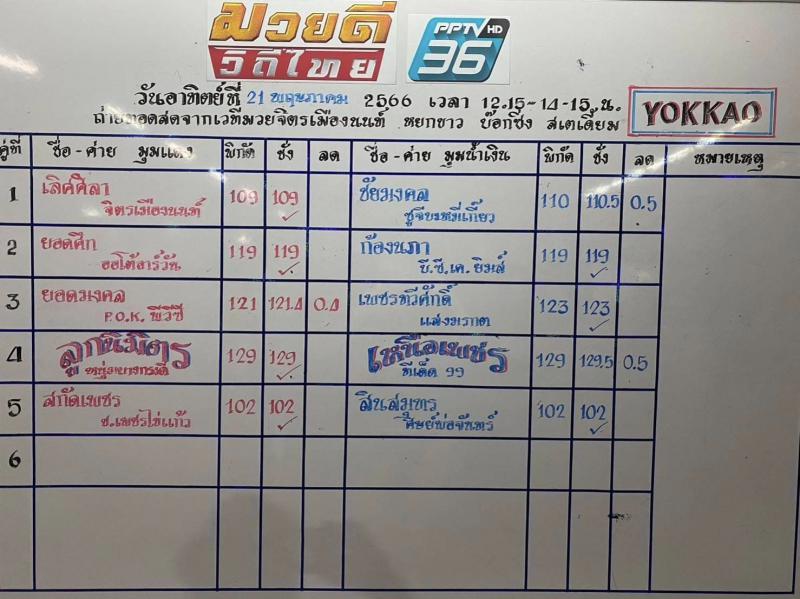 มวยดี
วิถีไทย
PPTV HD
36
วันอาทิตย์ที่ 21 พฤษภาคม 2566 เวลา 12.15-14-15 น.
ถ่ายทอดสดจากเวทีมวยจิตรเมืองนนท์ หยกขาว บ๊อกซิ่ง สเตเดี้ยม
YOKKAO
คู่ที่ ชื่อ - ค่าย มุมแดง พิกัด ชั่ง ลด ชื่อ - ค่าย มุมน้ำเงิน พิกัด ชั่ง ลด หมายเหตุ
1 เลิศศิลา 109 109 ชัยมงคล 110 110.5 0.5
จิตรเมืองนนท์ ชูจีบะหมี่เกี๊ยว
2 ยอดศึก 119 119 ก้องนภา 119 119
ออโต้อาร์วัน บี.ซี.เค.ยิมส์
3 ยอดมงคล 121 121.4 0.4 เพชรทวีศักดิ์ 123 123
P.O.K. พีวีซี แสงมรกต
4 ลูกนิมิตร 129 129 เหนือเพชร 129 129.5 0.5
หนุ่มบางกรวย ทีเด็ด 99
5 สกัดเพชร 102 102 สินสมุทร 102 102
ช.เพชรไข่แก้ว ศิษย์พ่อจันทร์
6